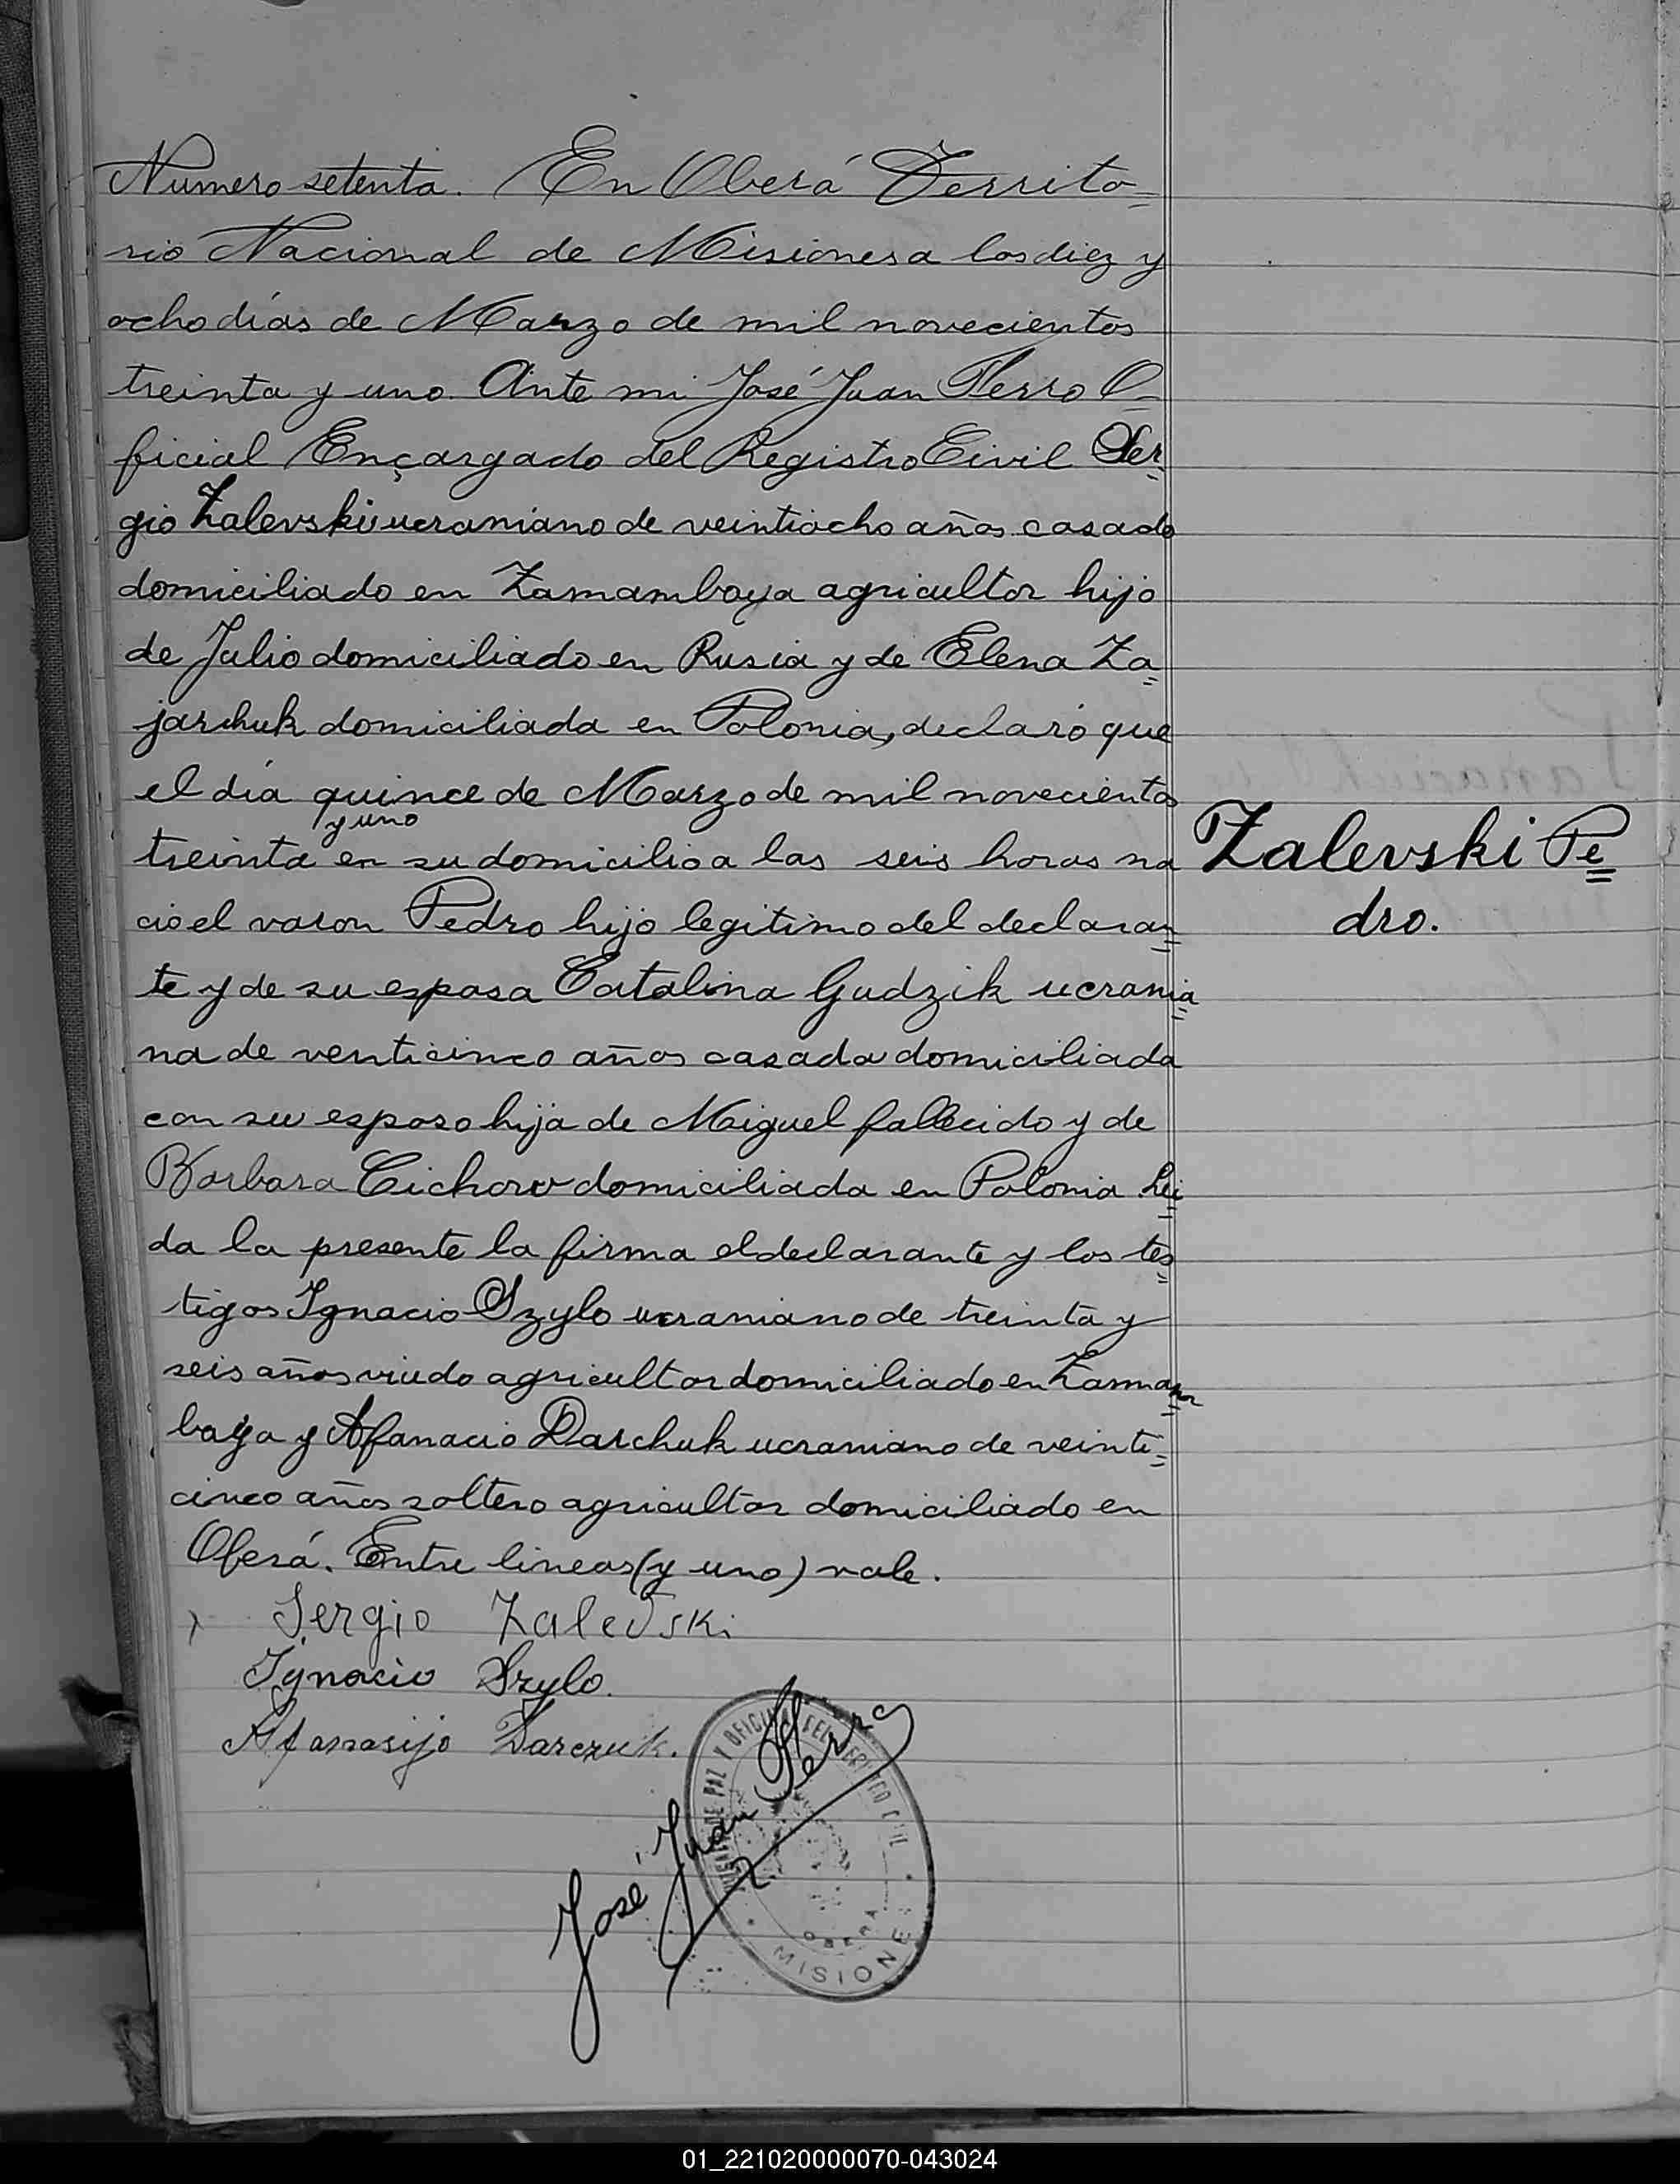 Numero setenta. En Oberá Territo=
rio Nacional de Misiones a los diez y
ocho días de Marzo de mil novecientos
treinta y uno. Ante mi José Juan Ferro O-
ficial Encargado del Registro Civil Ser=
gio Zalevski ucraniano de veintiocho años casado
domiciliado en Zamambaya agricultor hijo
de Julio domiciliado en Rusia y de Elena Za=
jarchuk domiciliada en Polonia, declaró que
el día quince de Marzo de mil novecientos
y uno
treinta en su domicilio a las seis horas na
Zalevski Pe=
ció el varon Pedro hijo legitimo del declaran=
dro.
te y de su esposa Catalina Gudzik ucrania=
na de venticinco años casada domiciliada
con su esposo hija de Miguel fallecido y de
Barbara Cichow domiciliada en Polonia Lei=
da la presente la firma el declarante y los tes=
tigos Ignacio Szylo ucraniano de treinta y
seis años viudo agricultor domiciliado en Zamam=
baya y Afanacio Darchuk ucraniano de veinti=
cinco años soltero agricultor domiciliado en
Oberá. Entre lineas (y uno) vale.
Sergio Zalevski
Ignacio Szylo.
Afanasijo Darczuk.
José Juan Ferro
DE PAZ Y OFICINA DEL REGISTRO CIVIL
OBERA
MISIONES
01_221020000070-043024